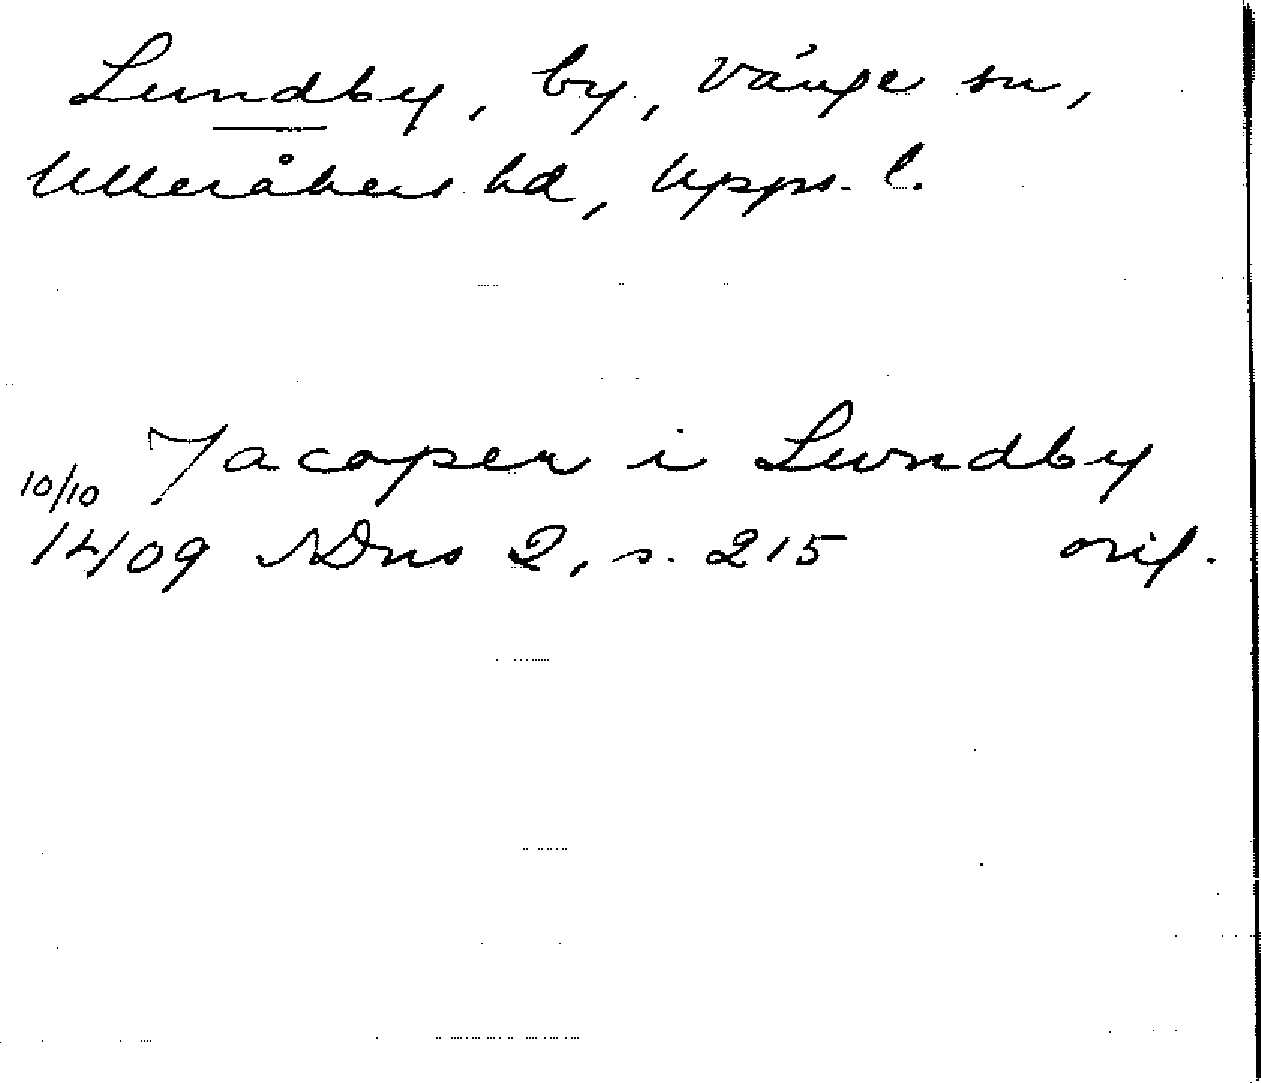 Lundby, by, Vänge sn,
Ulleråkers hd, Upps. l.
Jacoper i Lundby
10/10
1409 SDns 2, s. 215 orig.